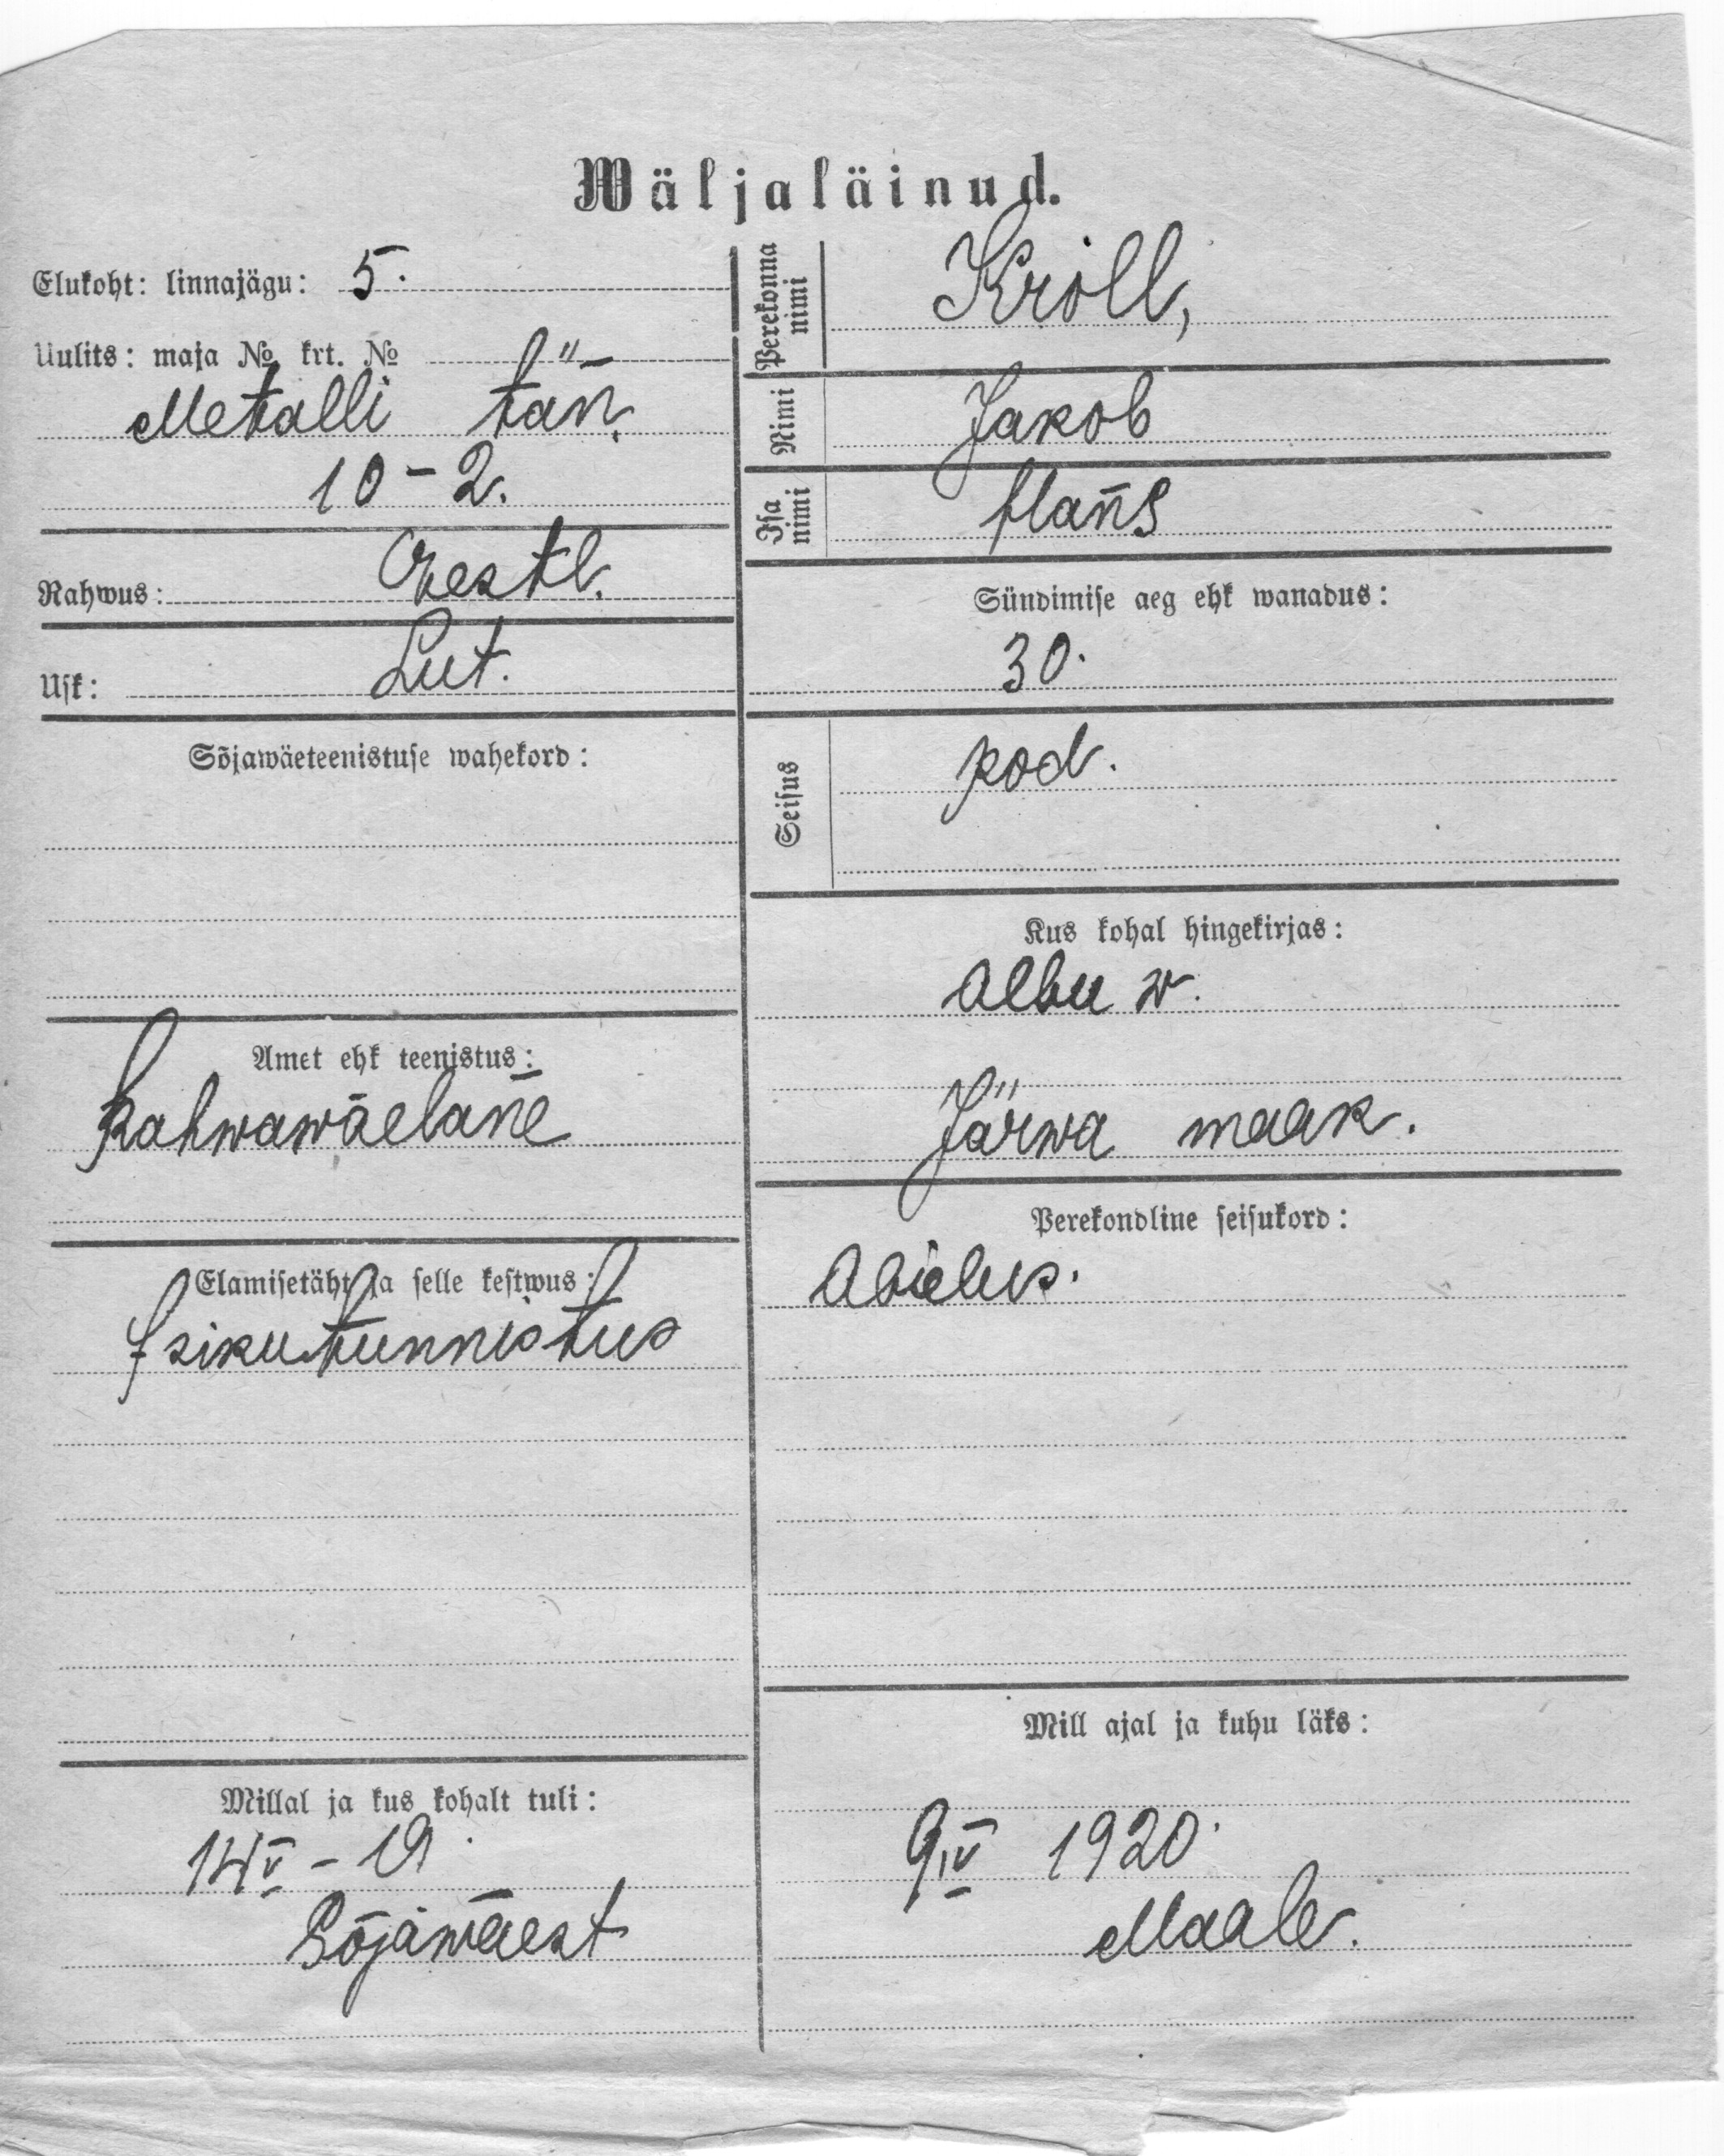 Wäljaläinud.
Elukoht: linnajagu: 5.
Uulits: maja № krt. №
Metalli tän.
10 – 2.
Rahwus: Eestl.
Usk: Lut.
Sõjawäeteenistuse wahekord:
Amet ehk teenistus:
Rahwawäelane
Elamisetäht ja selle kestwus:
Isikutunnistus
Millal ja kus kohalt tuli:
14 V – 19.
Sõjawäest
Perekonna nimi
Kroll,
Nimi
Jakob
Isa nimi
Hans
Sündimise aeg ehk wanadus:
30.
Seisus
kod.
Kus kohal hingekirjas:
Albu w.
Järwa maak.
Perekondline seisukord:
Abielus.
Mill ajal ja kuhu läks:
9 IV 1920.
Maale.